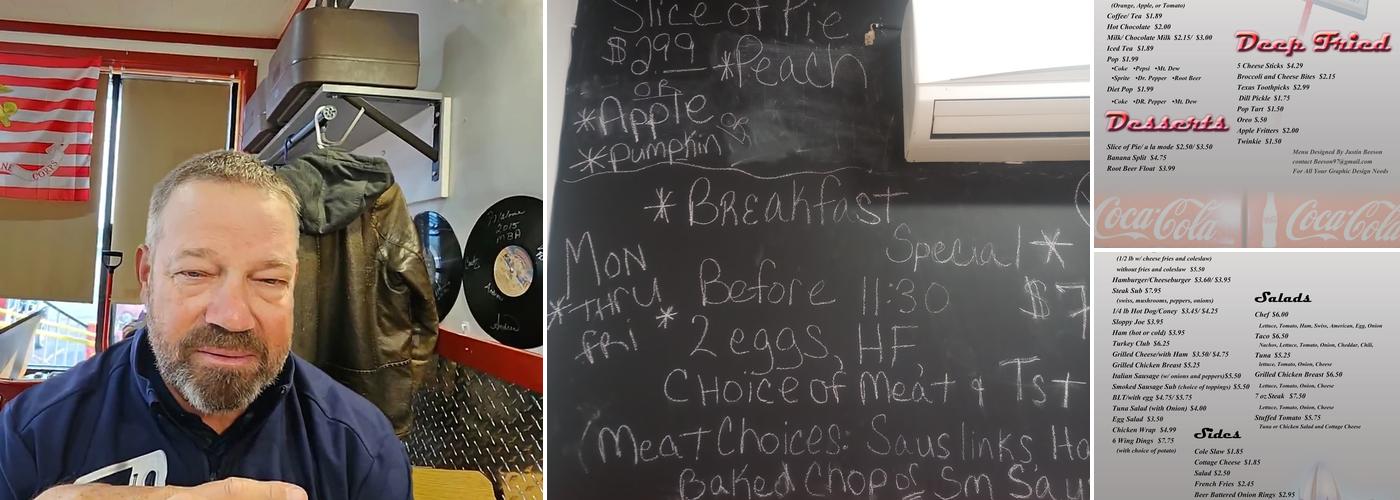 CORPS
2015
MBA
10
Slice of Pie
$2.99 *Peach
OR
*Apple or
*Pumpkin
*BReakfast
Special*
Mon
*THRU*
FRI
Before 11:30 $7
2 eggs, HF
CHoice of Meat & Tst
(Meat Choices: Saus links Ha
Baked Chop or Sm Sau
(Orange, Apple, or Tomato)
Coffee/ Tea $1.89
Hot Chocolate $2.00
Milk/ Chocolate Milk $2.15/ $3.00
Iced Tea $1.89
Pop $1.99
•Coke •Pepsi •Mt. Dew
•Sprite •Dr. Pepper •Root Beer
Diet Pop $1.99
•Coke •DR. Pepper •Mt. Dew
Desserts
Slice of Pie/ a la mode $2.50/ $3.50
Banana Split $4.75
Root Beer Float $3.99
Deep Fried
5 Cheese Sticks $4.29
Broccoli and Cheese Bites $2.15
Texas Toothpicks $2.99
Dill Pickle $1.75
Pop Tart $1.50
Oreo $.50
Apple Fritters $2.00
Twinkie $1.50
Menu Designed By Justin Beeson
contact Beeson97@gmail.com
For All Your Graphic Design Needs
Coca-Cola
Coca-Cola
(1/2 lb w/ cheese fries and coleslaw)
without fries and coleslaw $5.50
Hamburger/Cheeseburger $3.60/ $3.95
Steak Sub $7.95
(swiss, mushrooms, peppers, onions)
1/4 lb Hot Dog/Coney $3.45/ $4.25
Sloppy Joe $3.95
Ham (hot or cold) $3.95
Turkey Club $6.25
Grilled Cheese/with Ham $3.50/ $4.75
Grilled Chicken Breast $5.25
Italian Sausage (w/ onions and peppers)$5.50
Smoked Sausage Sub (choice of toppings) $5.50
BLT/with egg $4.75/ $5.75
Tuna Salad (with Onion) $4.00
Egg Salad $3.50
Chicken Wrap $4.99
6 Wing Dings $7.75
(with choice of potato)
Salads
Chef $6.00
Lettuce, Tomato, Ham, Swiss, American, Egg, Onion
Taco $6.50
Nachos, Lettuce, Tomato, Onion, Cheddar, Chili,
Tuna $5.25
lettuce, Tomato, Onion, Cheese
Grilled Chicken Breast $6.50
Lettuce, Tomato, Onion, Cheese
7 oz Steak $7.50
Lettuce, Tomato, Onion, Cheese
Stuffed Tomato $5.75
Tuna or Chicken Salad and Cottage Cheese
Sides
Cole Slaw $1.85
Cottage Cheese $1.85
Salad $2.50
French Fries $2.45
Beer Battered Onion Rings $2.95